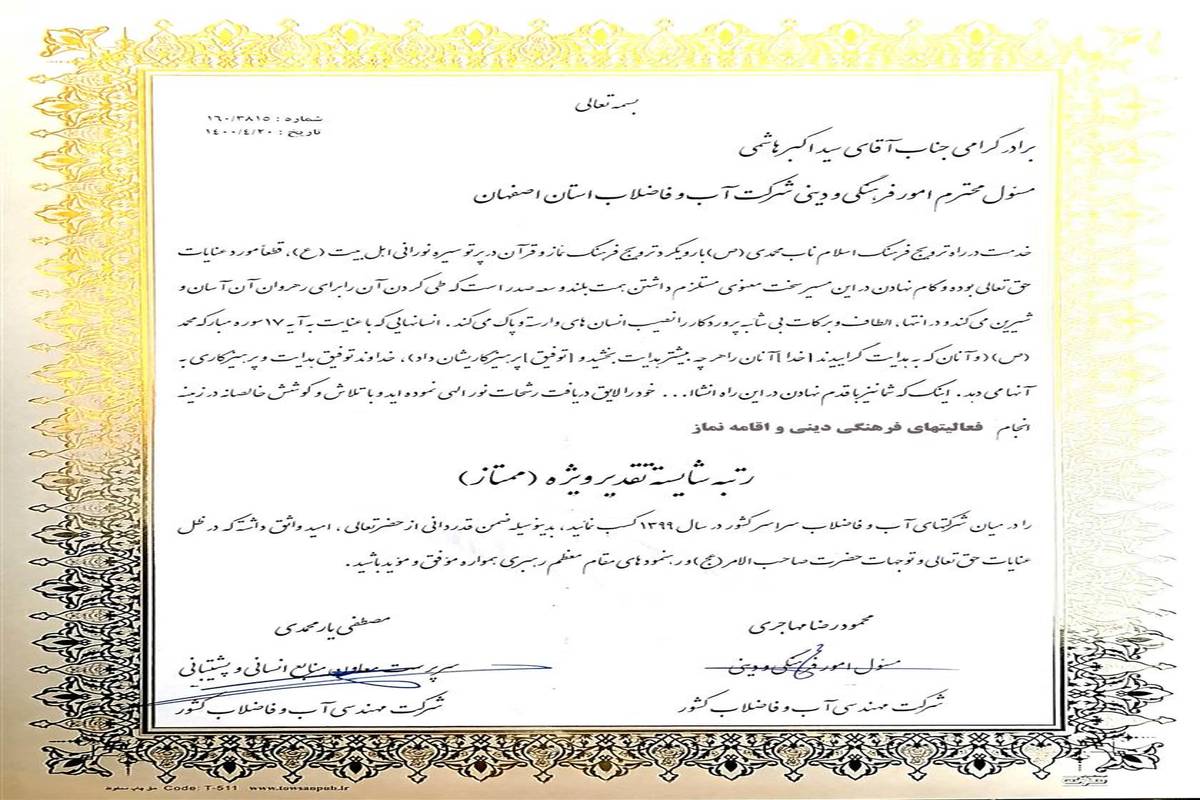 بسمه تعالی
شماره : ۱٦۰/۳۸۱۵
تاریخ : ۱٤۰۰/٤/۲۰
برادر گرامی جناب آقای سید اکبر هاشمی
مسئول محترم امور فرهنگی و دینی شرکت آب و فاضلاب استان اصفهان
خدمت در راه ترویج فرهنگ اسلام ناب محمدی (ص) با رویکرد ترویج فرهنگ نماز و قرآن در پرتو سیره نورانی اهل بیت (ع)، قطعاً مورد عنایات
حق تعالی بوده و گام نهادن در این مسیر سخت معنوی مستلزم داشتن همت بلند و سعه صدر است که طی کردن آن را برای رهروان آن آسان و
شیرین می کند و در انتها، الطاف و برکات بی شائبه پروردگار را نصیب انسان های وارسته و پاک می کند . انسانهایی که با عنایت به آیه ۱۷ سوره مبارکه محمد
(ص) (و آنان که به هدایت گراییدند [خدا] آنان را هر چه بیشتر هدایت بخشید و [توفیق] پرهیزگاریشان داد)، خداوند توفیق هدایت و پرهیزگاری به
آنها می دهد . اینک که شما نیز با قدم نهادن در این راه انشاا... خود را لایق دریافت رشحات نور الهی نموده اید و با تلاش و کوشش خالصانه در زمینه
انجام فعالیتهای فرهنگی دینی و اقامه نماز
رتبه شایسته تقدیر ویژه (ممتاز)
را در میان شرکتهای آب و فاضلاب سراسر کشور در سال ۱۳۹۹ کسب نمائید، بدینوسیله ضمن قدردانی از حضرتعالی ، امید واثق داشته که در ظل
عنایات حق تعالی و توجهات حضرت صاحب الامر (عج) و رهنمودهای مقام معظم رهبری همواره موفق و مؤید باشید .
محمودرضا مهاجری
مسئول امور فرهنگی و دینی
شرکت مهندسی آب و فاضلاب کشور
مصطفی یارمحمدی
سرپرست معاونت منابع انسانی و پشتیبانی
شرکت مهندسی آب و فاضلاب کشور
Code: T-511 www.towsanpub.ir